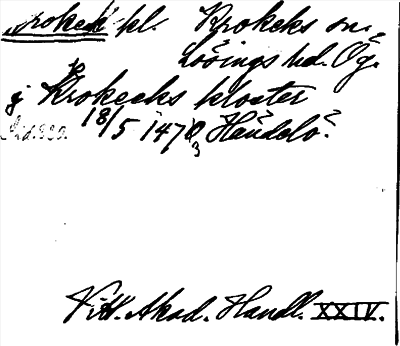 Krokek kl. Krokeks sn.
Lösings hd. Ög.
j Krokeeks kloster
18/5 1470 Händelö.
Vitt. Akad. Handl. XXIV.